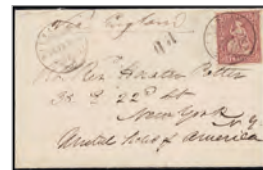 Via England
PD
Rt Rev. Horatio Potter
38 E 22d St
New York
N.Y.
United States of America